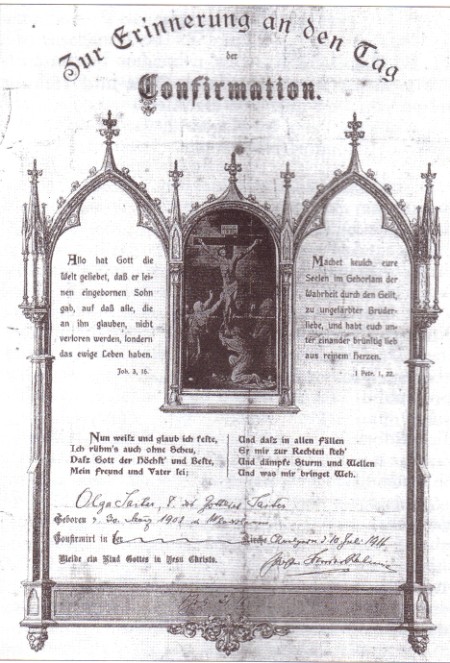 Zur Erinnerung an den Tag
der
Confirmation.
Also hat Gott die
Welt geliebet, daß er sei-
nen eingebornen Sohn
gab, auf daß alle, die
an ihn glauben, nicht
verloren werden, sondern
das ewige Leben haben.
Joh. 3, 16.
Machet keusch eure
Seelen im Gehorsam der
Wahrheit durch den Geist,
zu ungefärbter Bruder-
liebe, und habt euch un-
ter einander brünstig lieb
aus reinem Herzen.
1 Petr. 1, 22.
Nun weiß und glaub ich feste,
Ich rühm's auch ohne Scheu,
Daß Gott der Höchst' und Beste,
Mein Freund und Vater sei;
Und daß in allen Fällen
Er mir zur Rechten steh'
Und dämpfe Sturm und Wellen
Und was mir bringet Weh.
Olga Gottlieb
Geboren 30 1901
Confirmirt in Kirche 10 Juli
Bleibe ein Kind Gottes in Jesu Christo.